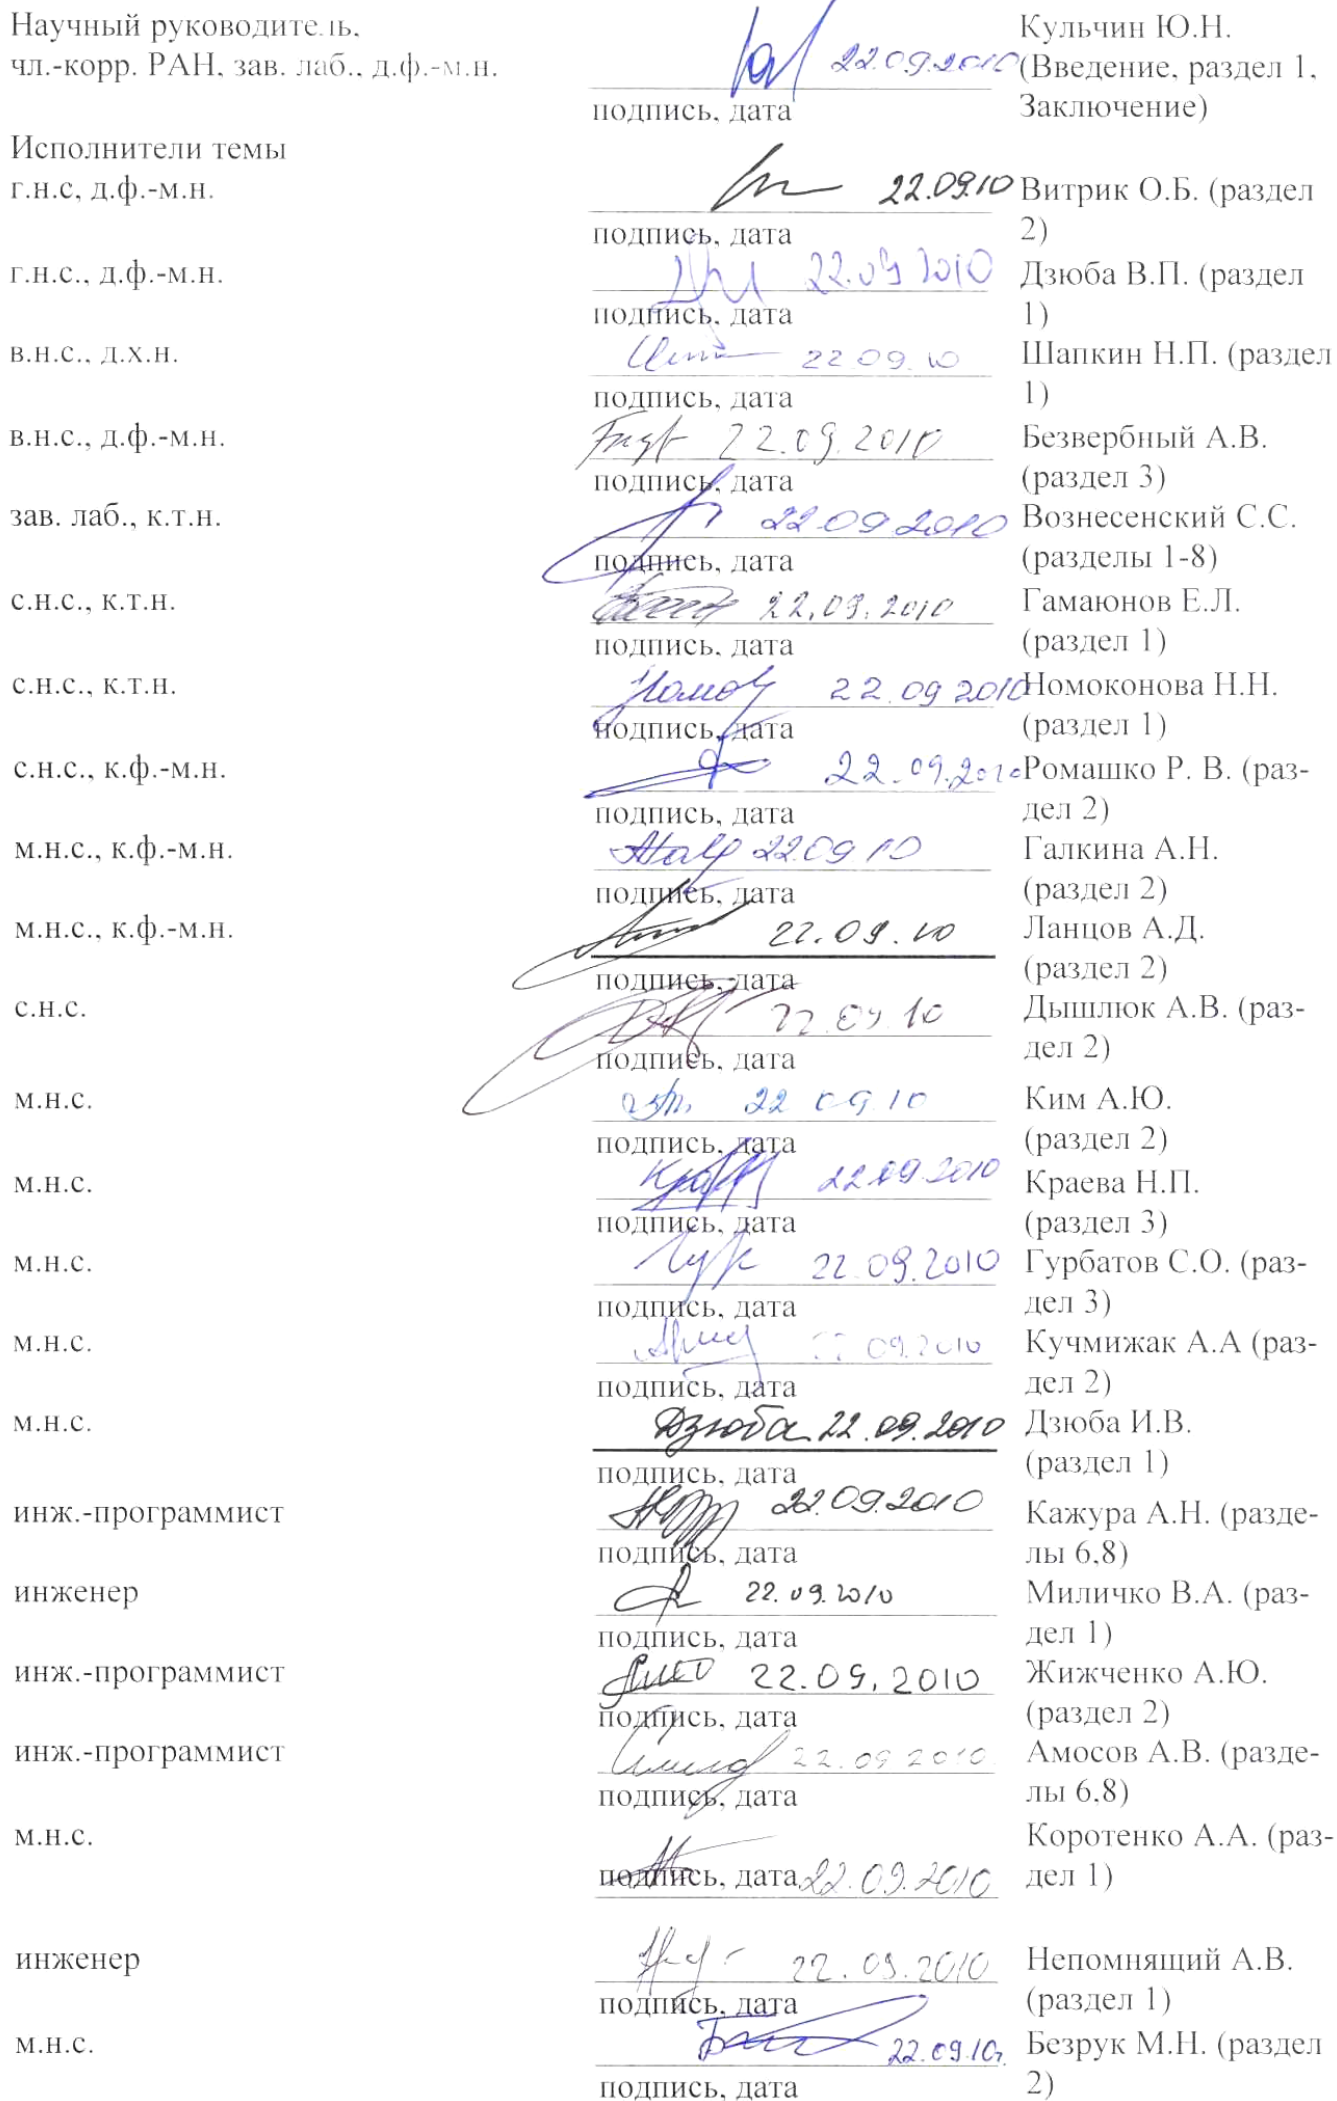 Научный руководитель,
чл.-корр. РАН, зав. лаб., д.ф.-м.н.
22.09.2010
подпись, дата
Кульчин Ю.Н.
(Введение, раздел 1,
Заключение)
Исполнители темы
г.н.с, д.ф.-м.н.
22.09.10
подпись, дата
Витрик О.Б. (раздел
2)
г.н.с., д.ф.-м.н.
22.09 2010
подпись, дата
Дзюба В.П. (раздел
1)
в.н.с., д.х.н.
22.09.10
подпись, дата
Шапкин Н.П. (раздел
1)
в.н.с., д.ф.-м.н.
22.09.2010
подпись, дата
Безвербный А.В.
(раздел 3)
зав. лаб., к.т.н.
22.09.2010
подпись, дата
Вознесенский С.С.
(разделы 1-8)
с.н.с., к.т.н.
22.09.2010
подпись, дата
Гамаюнов Е.Л.
(раздел 1)
с.н.с., к.т.н.
22.09 2010
подпись, дата
Номоконова Н.Н.
(раздел 1)
с.н.с., к.ф.-м.н.
22.09.2010
подпись, дата
Ромашко Р. В. (раз-
дел 2)
м.н.с., к.ф.-м.н.
22.09 10
подпись, дата
Галкина А.Н.
(раздел 2)
м.н.с., к.ф.-м.н.
22.09.10
подпись, дата
Ланцов А.Д.
(раздел 2)
с.н.с.
22.09 10
подпись, дата
Дышлюк А.В. (раз-
дел 2)
м.н.с.
22 09 10
подпись, дата
Ким А.Ю.
(раздел 2)
м.н.с.
22.09.2010
подпись, дата
Краева Н.П.
(раздел 3)
м.н.с.
22.09.2010
подпись, дата
Гурбатов С.О. (раз-
дел 3)
м.н.с.
22 09.2010
подпись, дата
Кучмижак А.А (раз-
дел 2)
м.н.с.
Дзюба 22.09.2010
подпись, дата
Дзюба И.В.
(раздел 1)
инж.-программист
22.09.2010
подпись, дата
Кажура А.Н. (разде-
лы 6,8)
инженер
22.09.2010
подпись, дата
Миличко В.А. (раз-
дел 1)
инж.-программист
22.09.2010
подпись, дата
Жижченко А.Ю.
(раздел 2)
инж.-программист
22.09 2010
подпись, дата
Амосов А.В. (разде-
лы 6,8)
м.н.с.
подпись, дата 22.09.2010
Коротенко А.А. (раз-
дел 1)
инженер
22.09.2010
подпись, дата
Непомнящий А.В.
(раздел 1)
м.н.с.
22.09.10г.
подпись, дата
Безрук М.Н. (раздел
2)